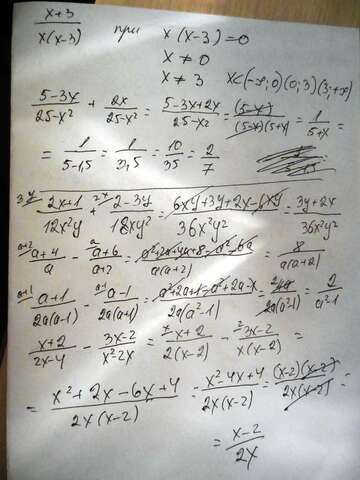 x+3 / x(x-3) при x(x-3)=0
x≠0
x≠3 x<(-∞;0)(0;3)(3;+∞)
5-3x / 25-x² + 2x / 25-x² = 5-3x+2x / 25-x² = (5-x) / (5-x)(5+x) = 1 / 5+x =
= 1 / 5-1,5 = 1 / 3,5 = 10 / 35 = 2 / 7
3y 2x+1 / 12x²y + 2x 2-3y / 18xy² = 6xy+3y+2x-6xy / 36x²y² = 3y+2x / 36x²y²
a+2 a+4 / a - a a+6 / a+2 = a²+2a+4a+8-a²-6a / a(a+2) = 8 / a(a+2)
a+1 a+1 / 2a(a-1) - a-1 a-1 / 2a(a+1) = a²+2a+1-a²+2a-1 / 2a(a²-1) = 4a / 2a(a²-1) = 2 / a²-1
x+2 / 2x-4 - 3x-2 / x²-2x = x x+2 / 2(x-2) - 2 3x-2 / x(x-2) =
= x²+2x-6x+4 / 2x(x-2) = x²-4x+4 / 2x(x-2) = (x-2)(x-2) / 2x(x-2) =
= x-2 / 2x